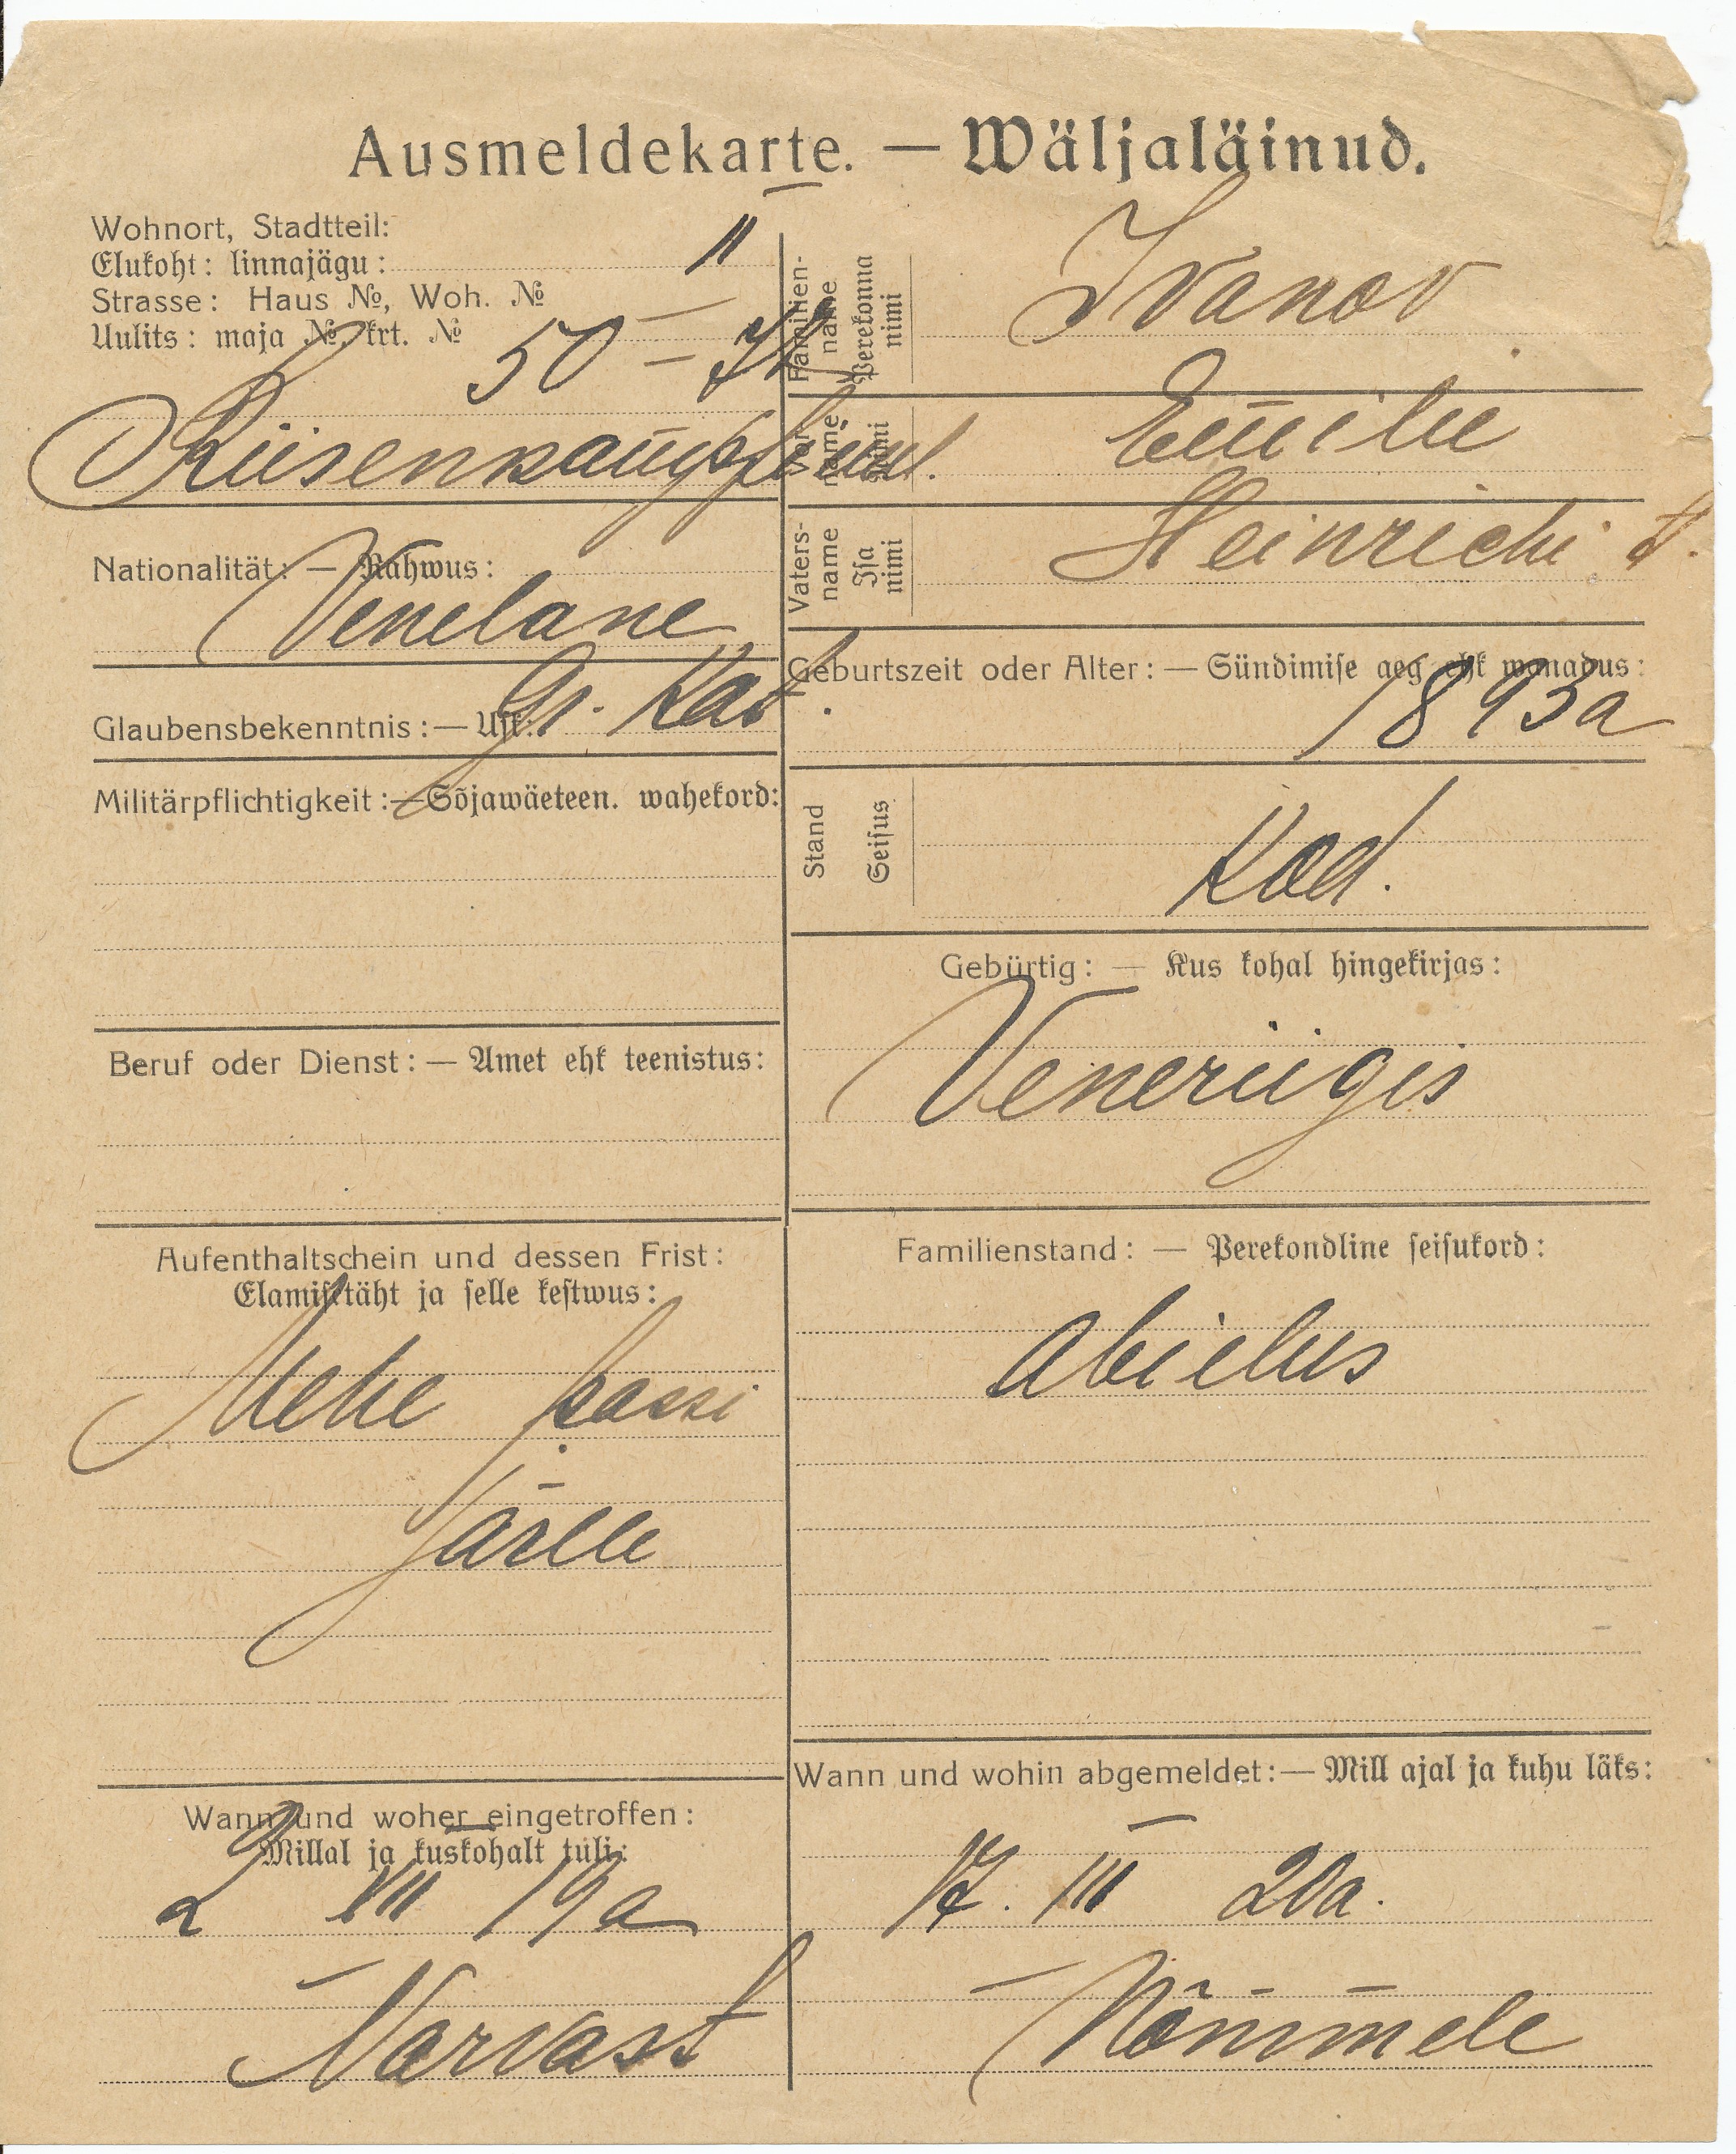 Ausmeldekarte. — Wäljaläinud.
Wohnort, Stadtteil:
Elukoht: linnajägu: II
Strasse: Haus №, Woh. №
Uulits: maja №, krt. №
50 –
Nationalität: — Rahwus:
Venelane
Glaubensbekenntnis: — Usk: Gr. Kat.
Militärpflichtigkeit: — Sõjawäeteen. wahekord:
Beruf oder Dienst: — Amet ehk teenistus:
Aufenthaltschein und dessen Frist:
Elamisetäht ja selle kestwus:
Mehe passi
järele
Wann und woher eingetroffen:
Millal ja kuskohalt tuli:
2 VIII 19a
Narvast
Familien-
name
Perekonna
nimi
Ivanov
Vor-
name
Nimi
Emilie
Vaters-
name
Isa
nimi
Heinrichi t.
Geburtszeit oder Alter: — Sündimise aeg ehk wanadus:
1893a
Stand
Seisus
Kod.
Gebürtig: — Kus kohal hingekirjas:
Veneriigis
Familienstand: — Perekondline seisukord:
Abielus
Wann und wohin abgemeldet: — Mill ajal ja kuhu läks:
17. III 20a.
Nõmmele